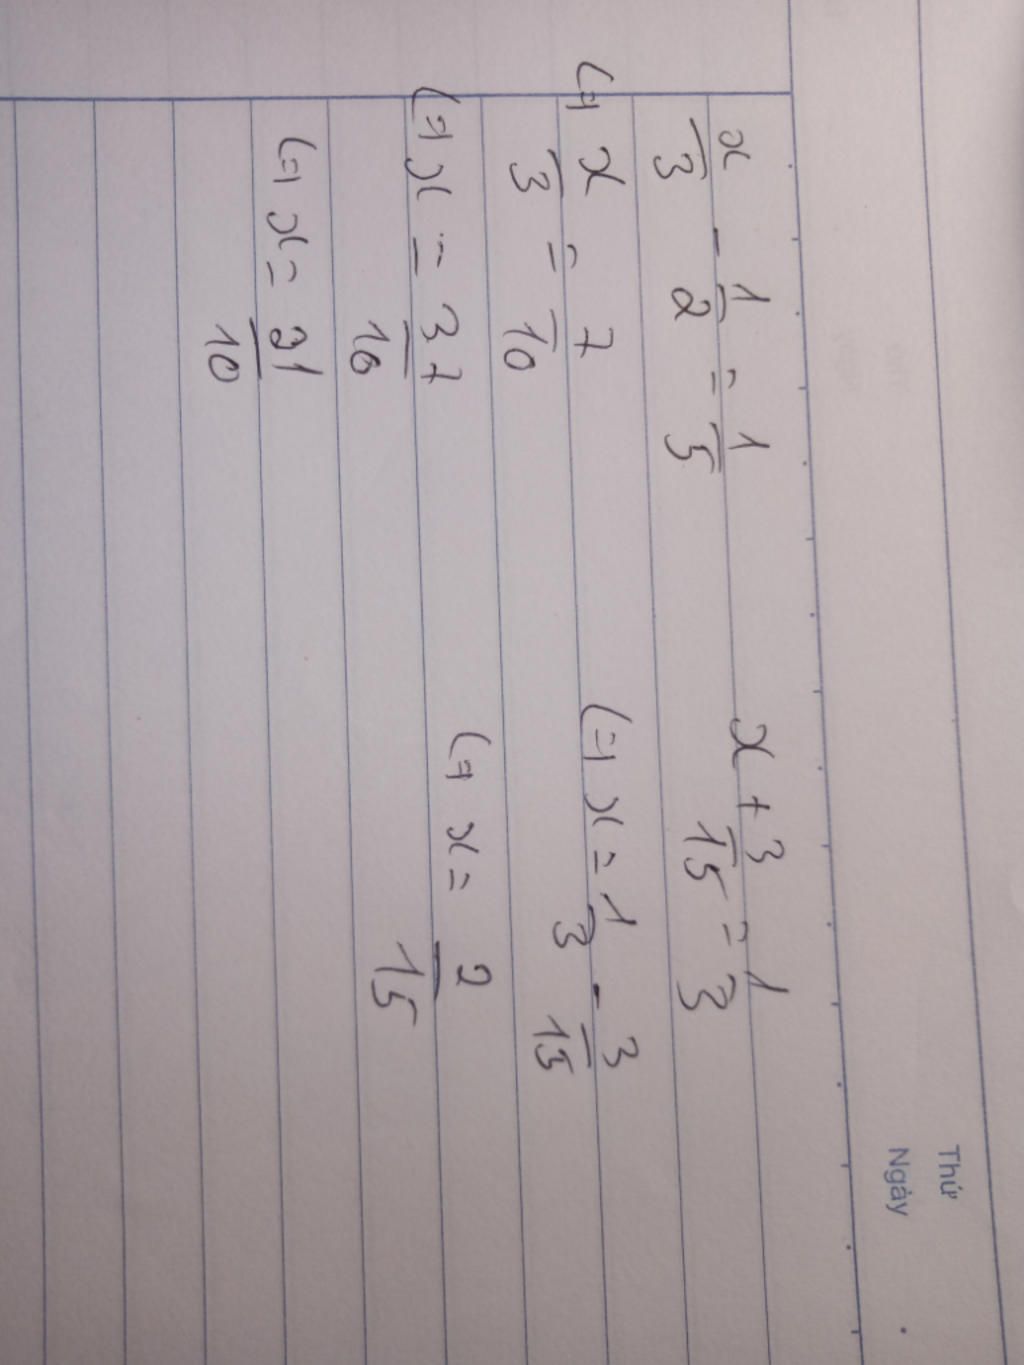 Thứ
Ngày
x/3 - 1/2 = 1/5
(=) x/3 = 7/10
(=) x = 3 7/10
(=) x = 21/10
x + 3/15 = 1/3
(=) x = 1/3 - 3/15
(=) x = 2/15